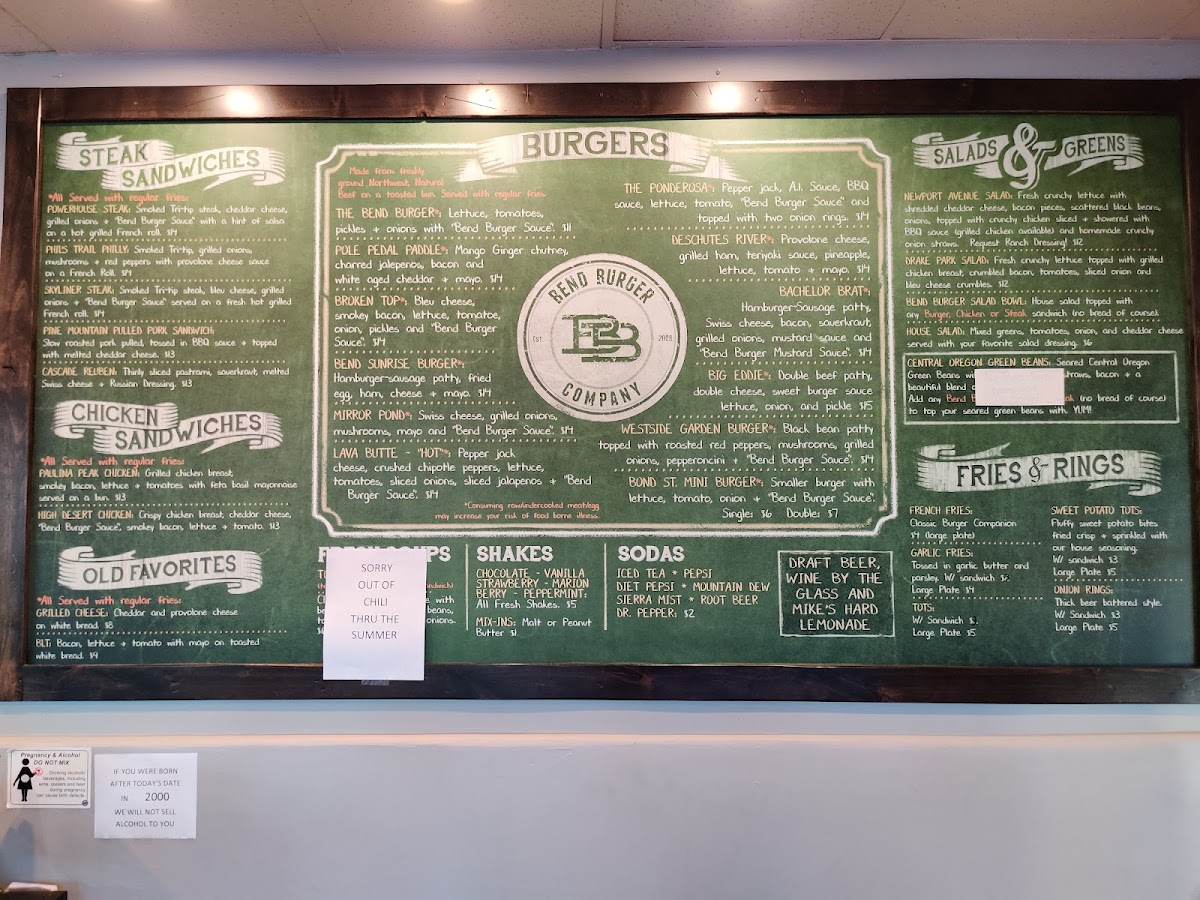 STEAK
SANDWICHES
*All Served with regular fries:
POWERHOUSE STEAK: Smoked Tri-tip steak, cheddar cheese,
grilled onions + "Bend Burger Sauce" with a hint of salsa
on a hot grilled French roll. $14
PHILS TRAIL PHILLY: Smoked Tri-tip, grilled onions,
mushrooms + red peppers with provolone cheese sauce
on a French Roll. $14
SKYLINER STEAK: Smoked Tri-tip steak, bleu cheese, grilled
onions + "Bend Burger Sauce" served on a fresh hot grilled
French roll. $14
PINE MOUNTAIN PULLED PORK SANDWICH:
Slow roasted pork pulled, tossed in BBQ sauce + topped
with melted cheddar cheese. $13
CASCADE REUBEN: Thinly sliced pastrami, sauerkraut, melted
Swiss cheese + Russian Dressing. $13
CHICKEN
SANDWICHES
*All Served with regular fries:
PAULINA PEAK CHICKEN: Grilled chicken breast,
smokey bacon, lettuce + tomatoes with feta basil mayonnaise
served on a bun. $13
HIGH DESERT CHICKEN: Crispy chicken breast, cheddar cheese,
"Bend Burger Sauce", smokey bacon, lettuce + tomato. $13
OLD FAVORITES
*All Served with regular fries:
GRILLED CHEESE: Cheddar and provolone cheese
on white bread. $8
BLT: Bacon, lettuce + tomato with mayo on toasted
white bread. $9
BURGERS
Made from freshly
ground Northwest, Natural
Beef on a toasted bun. Served with regular fries.
THE BEND BURGER*: Lettuce, tomatoes,
pickles + onions with "Bend Burger Sauce". $11
POLE PEDAL PADDLE*: Mango Ginger chutney,
charred jalepenos, bacon and
white aged cheddar + mayo. $14
BROKEN TOP*: Bleu cheese,
smokey bacon, lettuce, tomatoe,
onion, pickles and "Bend Burger
Sauce". $14
BEND SUNRISE BURGER*:
Hamburger-sausage patty, fried
egg, ham, cheese + mayo. $14
MIRROR POND*: Swiss cheese, grilled onions,
mushrooms, mayo and "Bend Burger Sauce". $14
LAVA BUTTE - "HOT"*: Pepper jack
cheese, crushed chipotle peppers, lettuce,
tomatoes, sliced onions, sliced jalapenos + "Bend
Burger Sauce". $14
THE PONDEROSA*: Pepper jack, A.1. Sauce, BBQ
sauce, lettuce, tomato, "Bend Burger Sauce" and
topped with two onion rings. $14
DESCHUTES RIVER*: Provolone cheese,
grilled ham, teriyaki sauce, pineapple,
lettuce, tomato + mayo. $14
BACHELOR BRAT*:
Hamburger-Sausage patty,
Swiss cheese, bacon, sauerkraut,
grilled onions, mustard sauce and
"Bend Burger Mustard Sauce". $14
BIG EDDIE*: Double beef patty,
double cheese, sweet burger sauce
lettuce, onion, and pickle $15
WESTSIDE GARDEN BURGER*: Black bean patty
topped with roasted red peppers, mushrooms, grilled
onions, pepperoncini + "Bend Burger Sauce". $14
BOND ST. MINI BURGER*: Smaller burger with
lettuce, tomato, onion + "Bend Burger Sauce".
Single: $6 Double: $7
*Consuming raw/undercooked meat/egg
may increase your risk of food borne illness.
BEND BURGER
Est. 2008
BB
COMPANY
SORRY
OUT OF
CHILI
THRU THE
SUMMER
SHAKES
CHOCOLATE - VANILLA
STRAWBERRY - MARION
BERRY - PEPPERMINT:
All Fresh Shakes. $5
MIX-INS: Malt or Peanut
Butter $1
SODAS
ICED TEA * PEPSI
DIET PEPSI * MOUNTAIN DEW
SIERRA MIST * ROOT BEER
DR. PEPPER: $2
DRAFT BEER,
WINE BY THE
GLASS AND
MIKE'S HARD
LEMONADE
SALADS & GREENS
NEWPORT AVENUE SALAD: Fresh crunchy lettuce with
shredded cheddar cheese, bacon pieces, scattered black beans,
onions, topped with crunchy chicken sliced + showered with
BBQ sauce (grilled chicken available) and homemade crunchy
onion straws. Request Ranch Dressing! $12
DRAKE PARK SALAD: Fresh crunchy lettuce topped with grilled
chicken breast, crumbled bacon, tomatoes, sliced onion and
bleu cheese crumbles. $12
BEND BURGER SALAD BOWL: House salad topped with
any Burger, Chicken or Steak sandwich (no bread of course).
HOUSE SALAD: Mixed greens, tomatoes, onion, and cheddar cheese
served with your favorite salad dressing. $6
CENTRAL OREGON GREEN BEANS: Seared Central Oregon
Green Beans wi straws, bacon + a
beautiful blend o
Add any Bend B ak (no bread of course)
to top your seared green beans with. YUM!!
FRIES & RINGS
FRENCH FRIES:
Classic Burger Companion
$4 (large plate)
GARLIC FRIES:
Tossed in garlic butter and
parsley. W/ sandwich $
Large Plate $4
TOTS:
W/ Sandwich $
Large Plate $5
SWEET POTATO TOTS:
Fluffy sweet potato bites
fried crisp + sprinkled with
our house seasoning.
W/ sandwich $3
Large Plate $5
ONION RINGS:
Thick beer battered style.
W/ Sandwich $3
Large Plate $5
Pregnancy & Alcohol
DO NOT MIX
Drinking alcoholic
beverages, including
wine, coolers and beer
during pregnancy
can cause birth defects
IF YOU WERE BORN
AFTER TODAY'S DATE
IN 2000
WE WILL NOT SELL
ALCOHOL TO YOU